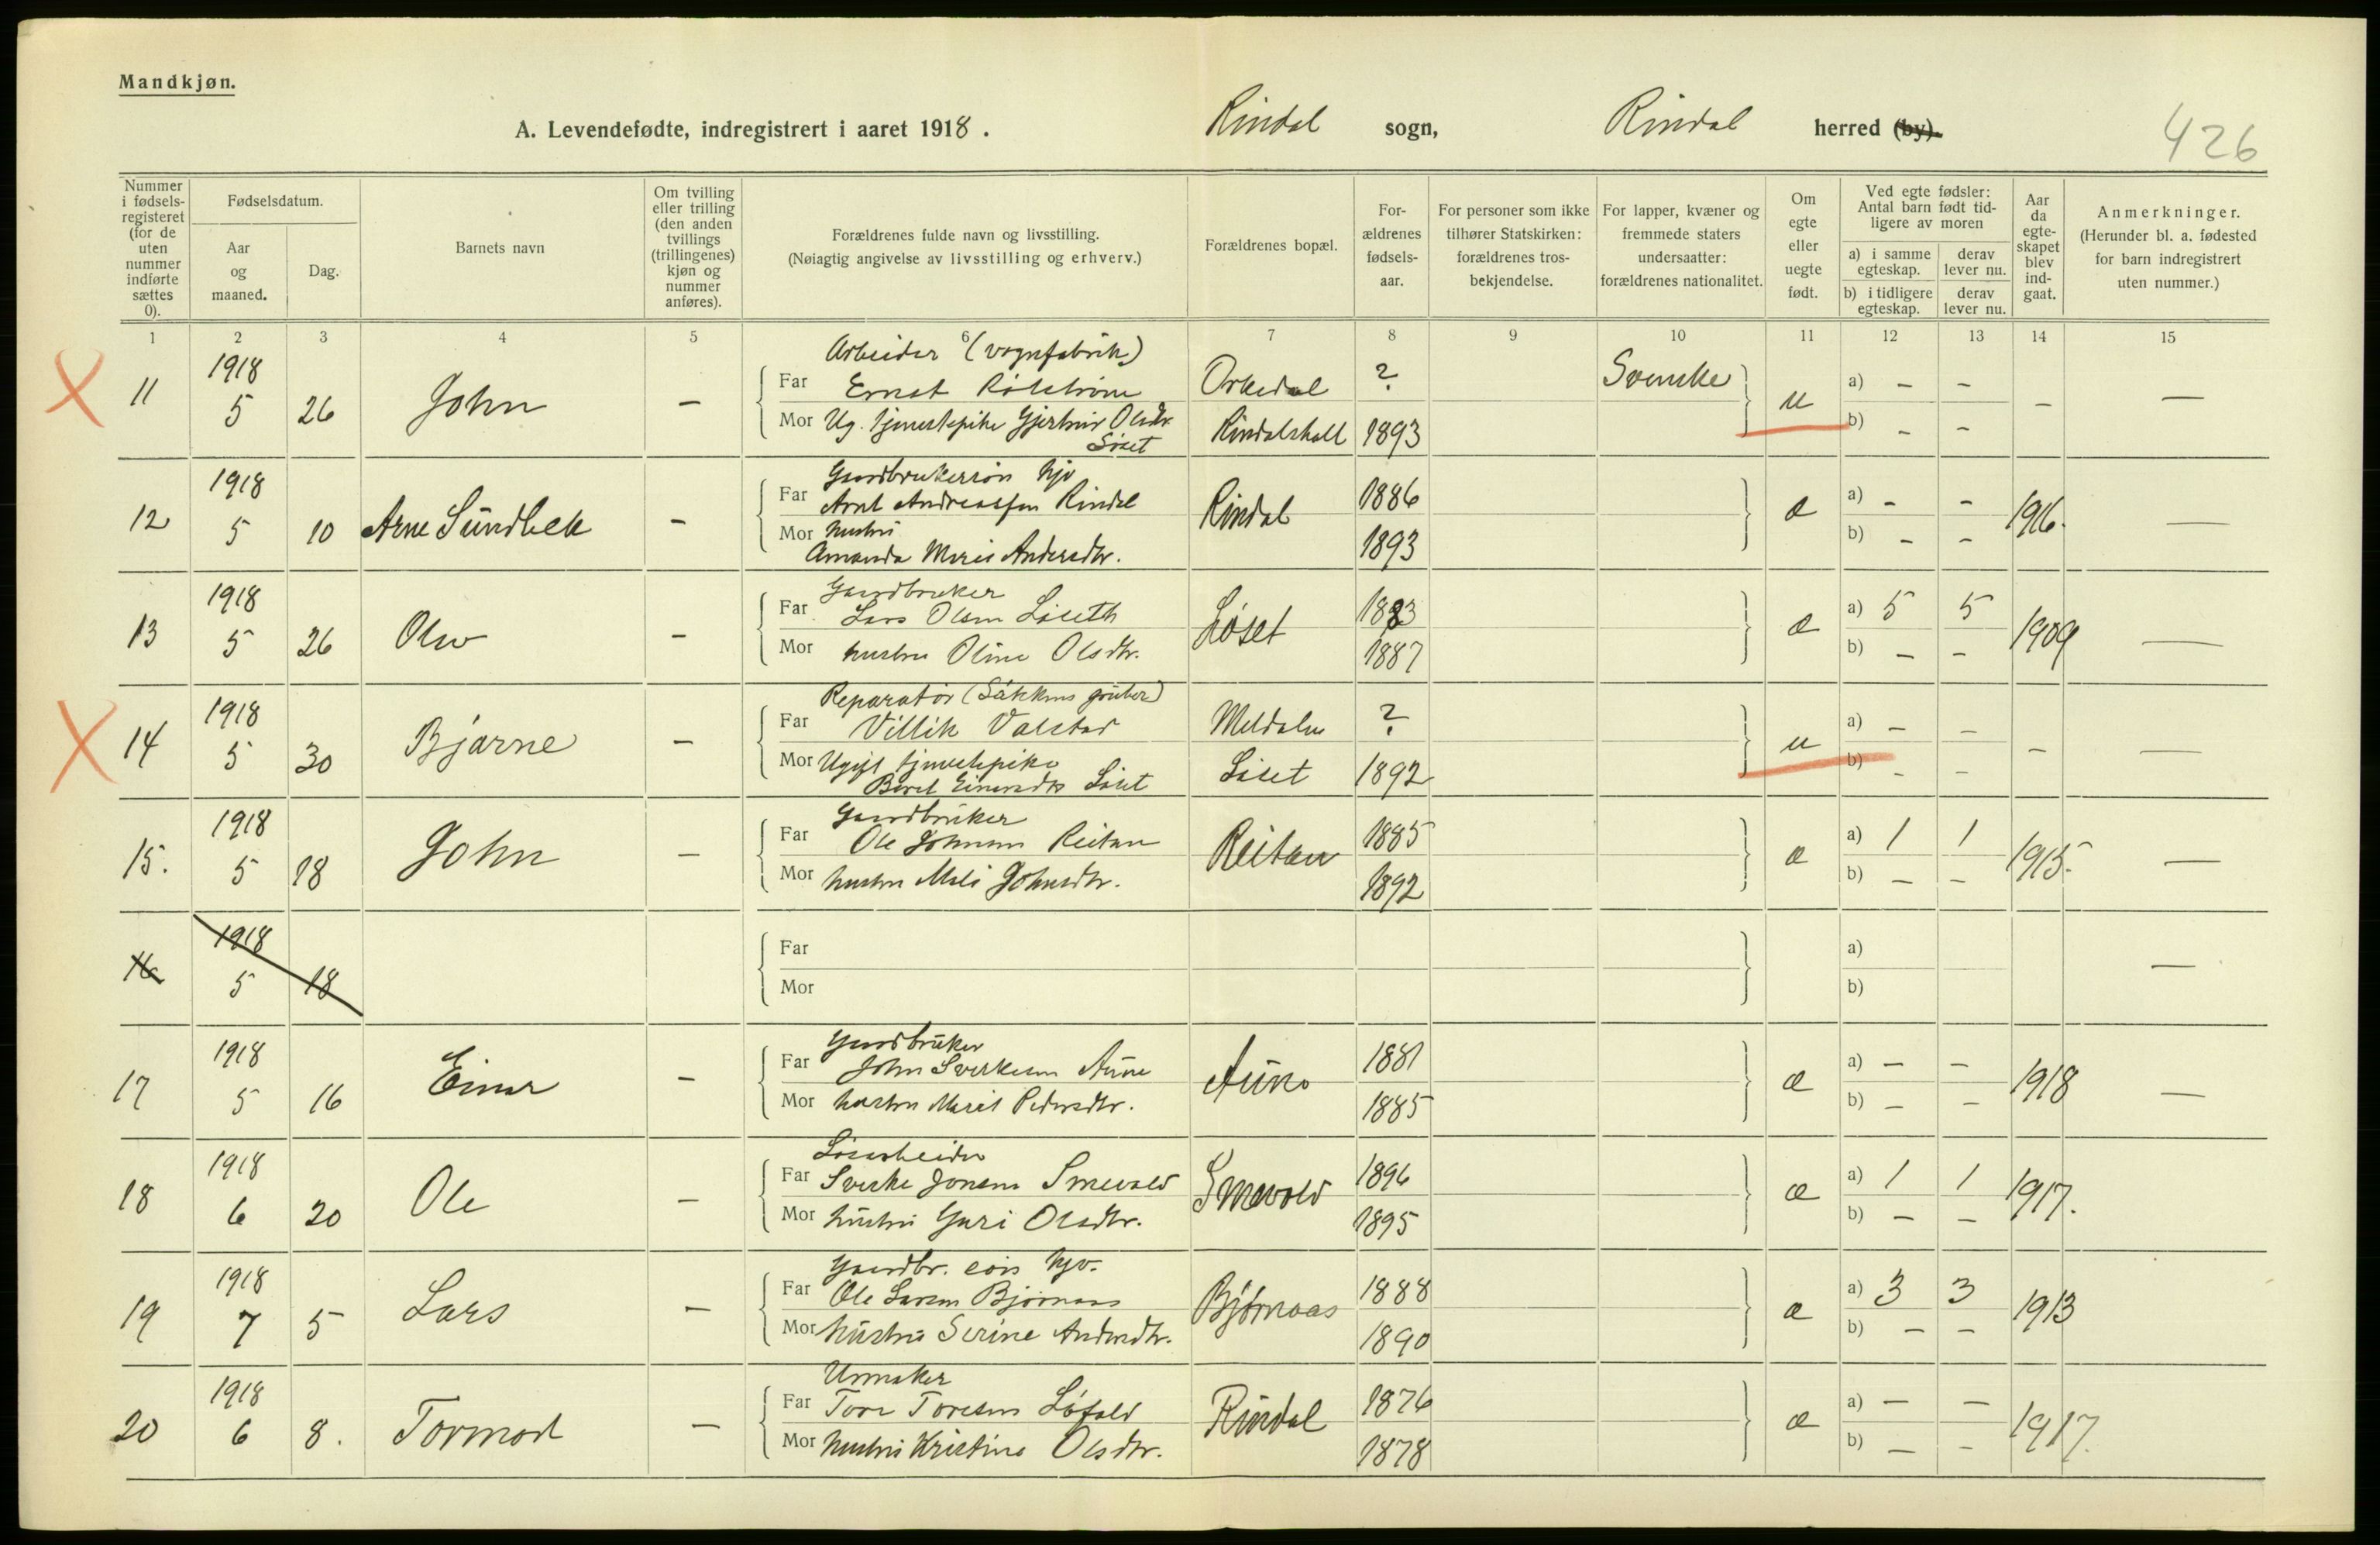 Mandkjøn.
A. Levendefødte, indregistrert i aaret 1918. Rindal sogn, Rindal herred (by).
426
Nummer i fødsels-registeret (for de uten nummer indførte sættes 0).
Fødselsdatum.
Aar og maaned.
Dag.
Barnets navn
Om tvilling eller trilling (den anden tvillings (trillingenes) kjøn og nummer anføres).
Forældrenes fulde navn og livsstilling.
(Nøiagtig angivelse av livsstilling og erhverv.)
Forældrenes bopæl.
For-ældrenes fødsels-aar.
For personer som ikke tilhører Statskirken: forældrenes tros-bekjendelse.
For lapper, kvæner og fremmede staters undersaatter: forældrenes nationalitet.
Om egte eller uegte født.
Ved egte fødsler: Antal barn født tid-ligere av moren
a) i samme egteskap. derav lever nu.
b) i tidligere egteskap. derav lever nu.
Aar da egte-skapet blev ind-gaat.
Anmerkninger.
(Herunder bl. a. fødested for barn indregistrert uten nummer.)
1 2 3 4 5 6 7 8 9 10 11 12 13 14 15
Arbeider (vognfabrik)
11 1918 5 26 John — Far Ernst Orkedal ? Svenske u a) — — — —
Mor Ug. tjenestepike Gjertrud Olsdtr. Løset Rindalskall 1893 b) — —
Gaardbrukersøn hjv
12 1918 5 10 Arne Sundbek — Far Arnt Andreassen Rindal Rindal 1886 æ a) — — 1916. —
Mor hustru Amanda Marie Andersdtr. 1893 b) — —
Gaardbruker
13 1918 5 26 Olav — Far Lars Olsen Løseth Løset 1883 æ a) 5 5 1909 —
Mor hustru Oline Olsdtr. 1887 b) — —
Reparatør (Løkkens gruber)
14 1918 5 30 Bjarne — Far Villik Valstad Meldalen ? u a) — — — —
Mor Ugift tjenestepike Beret Einarsdtr Løset Løset 1892 b) — —
Gaardbruker
15. 1918 5 18 John — Far Ole Johnsen Reitan Reitan 1885 æ a) 1 1 1915. —
Mor hustru Mali Johnsdtr. 1892 b) — —
16 1918 5 18 Far a) —
Mor b)
Gaardbruker
17 1918 5 16 Einar — Far John Sverkesen Aune Aune 1881 æ a) — — 1918 —
Mor hustru Marit Pedersdtr. 1885 b) — —
Løsarbeider
18 1918 6 20 Ole — Far Sverke Jonsen Smevold Smevold 1896 æ a) 1 1 1917.
Mor hustru Guri Olsdtr. 1895 b) — —
Gaardbr. søn hjv.
19 1918 7 5 Lars — Far Ole Larsen Bjørnaas Bjørnaas 1888 æ a) 3 3 1913
Mor hustru Serine Andersdtr. 1890 b) — —
Urmaker
20 1918 6 8. Tormod — Far Tore Toresen Løfald Rindal 1876 æ a) — — 1917.
Mor hustru Kristine Olsdtr. 1878 b) — —